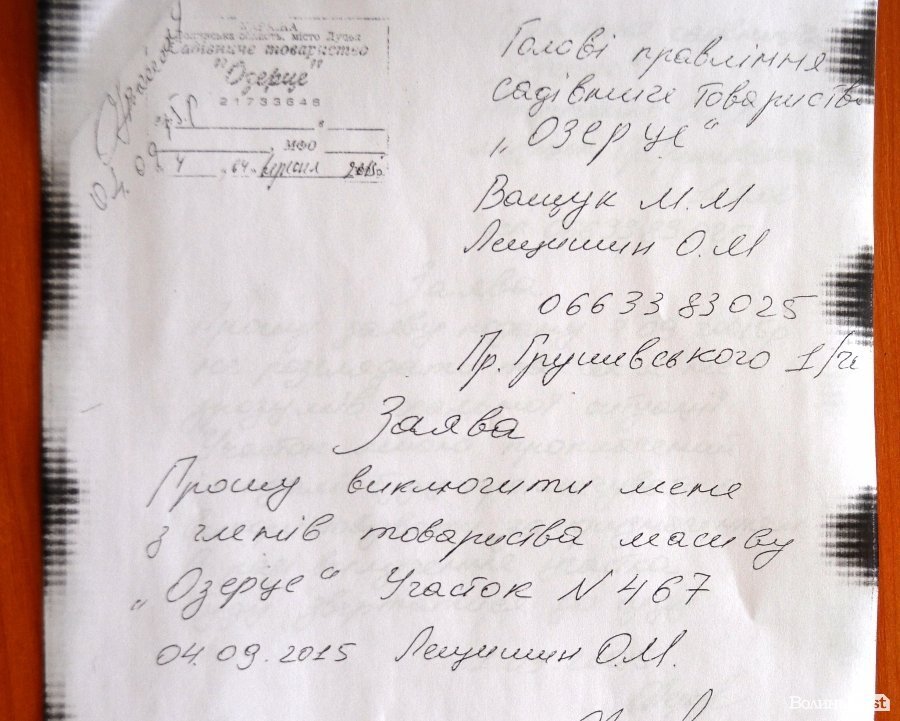 УКРАЇНА
Волинська область, місто Луцьк
Садівниче товариство
"Озерце"
21733646
, МФО
04 вересня 2015р
04.09
Голові правління
садівниче Товариства
„ОЗЕРЦЕ“
Ващук М.М
Лещишин О.М
0663383025
Пр. Грушевського 1/
Заява
Прошу виключити мене
з членів товариства масиву
„Озерце“ Участок N 467
04.09.2015 Лещишин О.М.